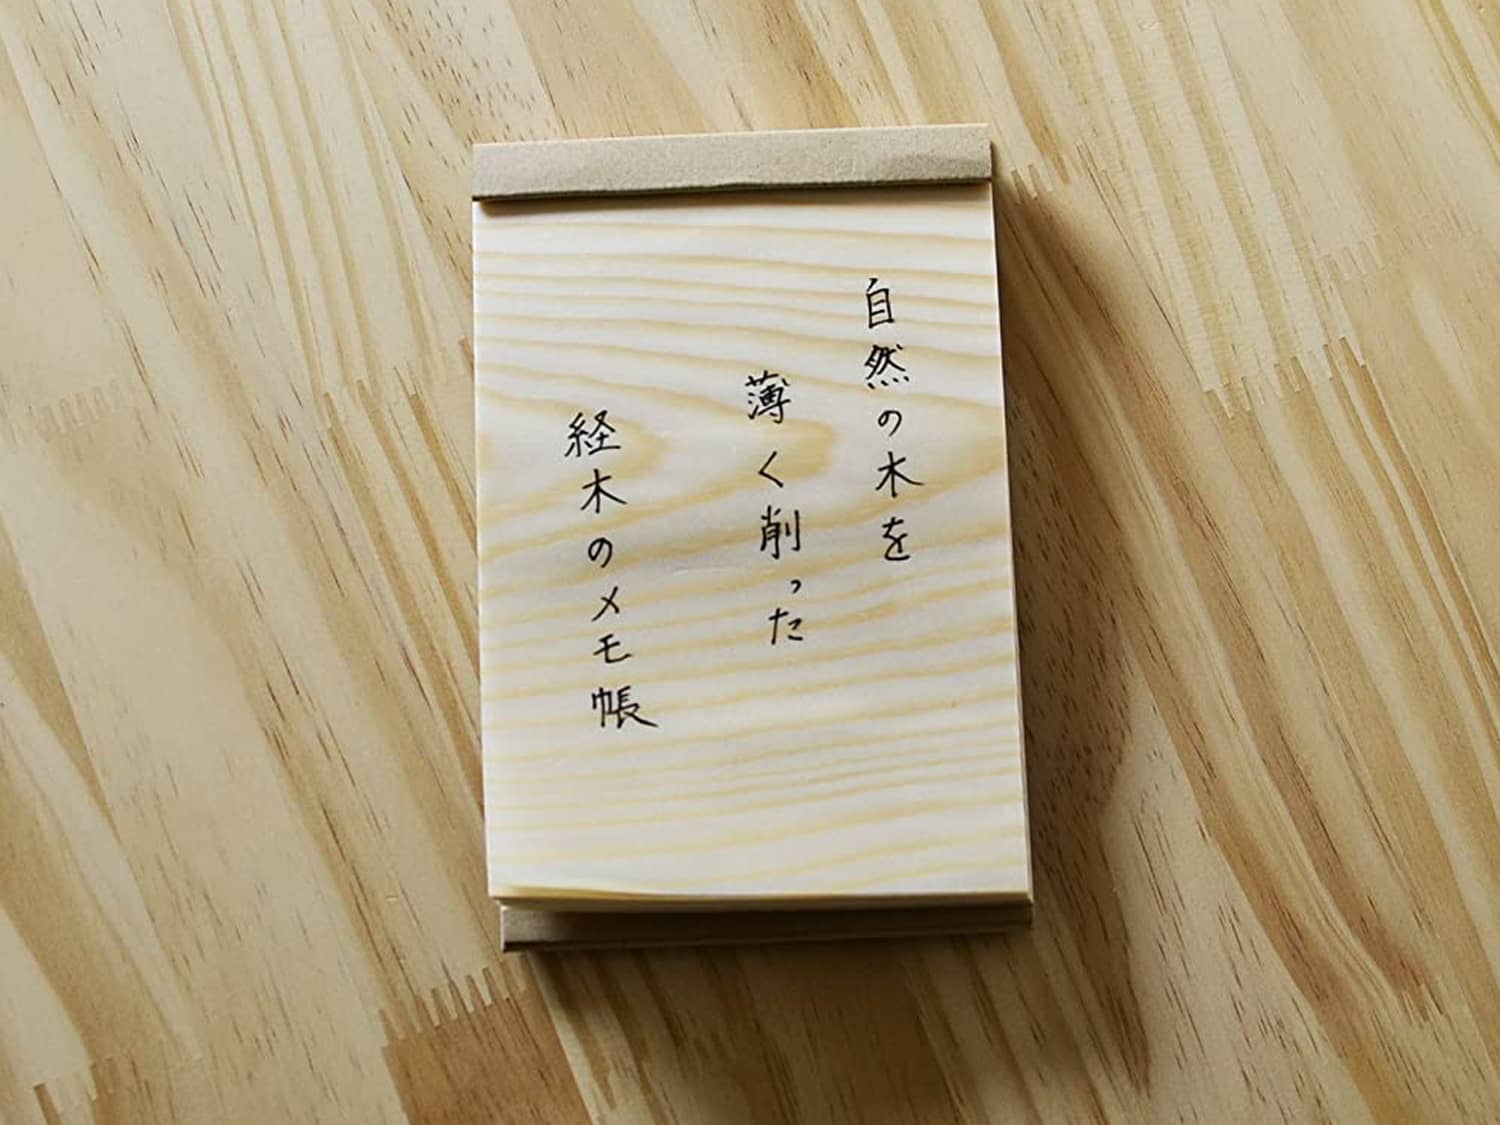 自然の木を
薄く削った
経木のメモ帳